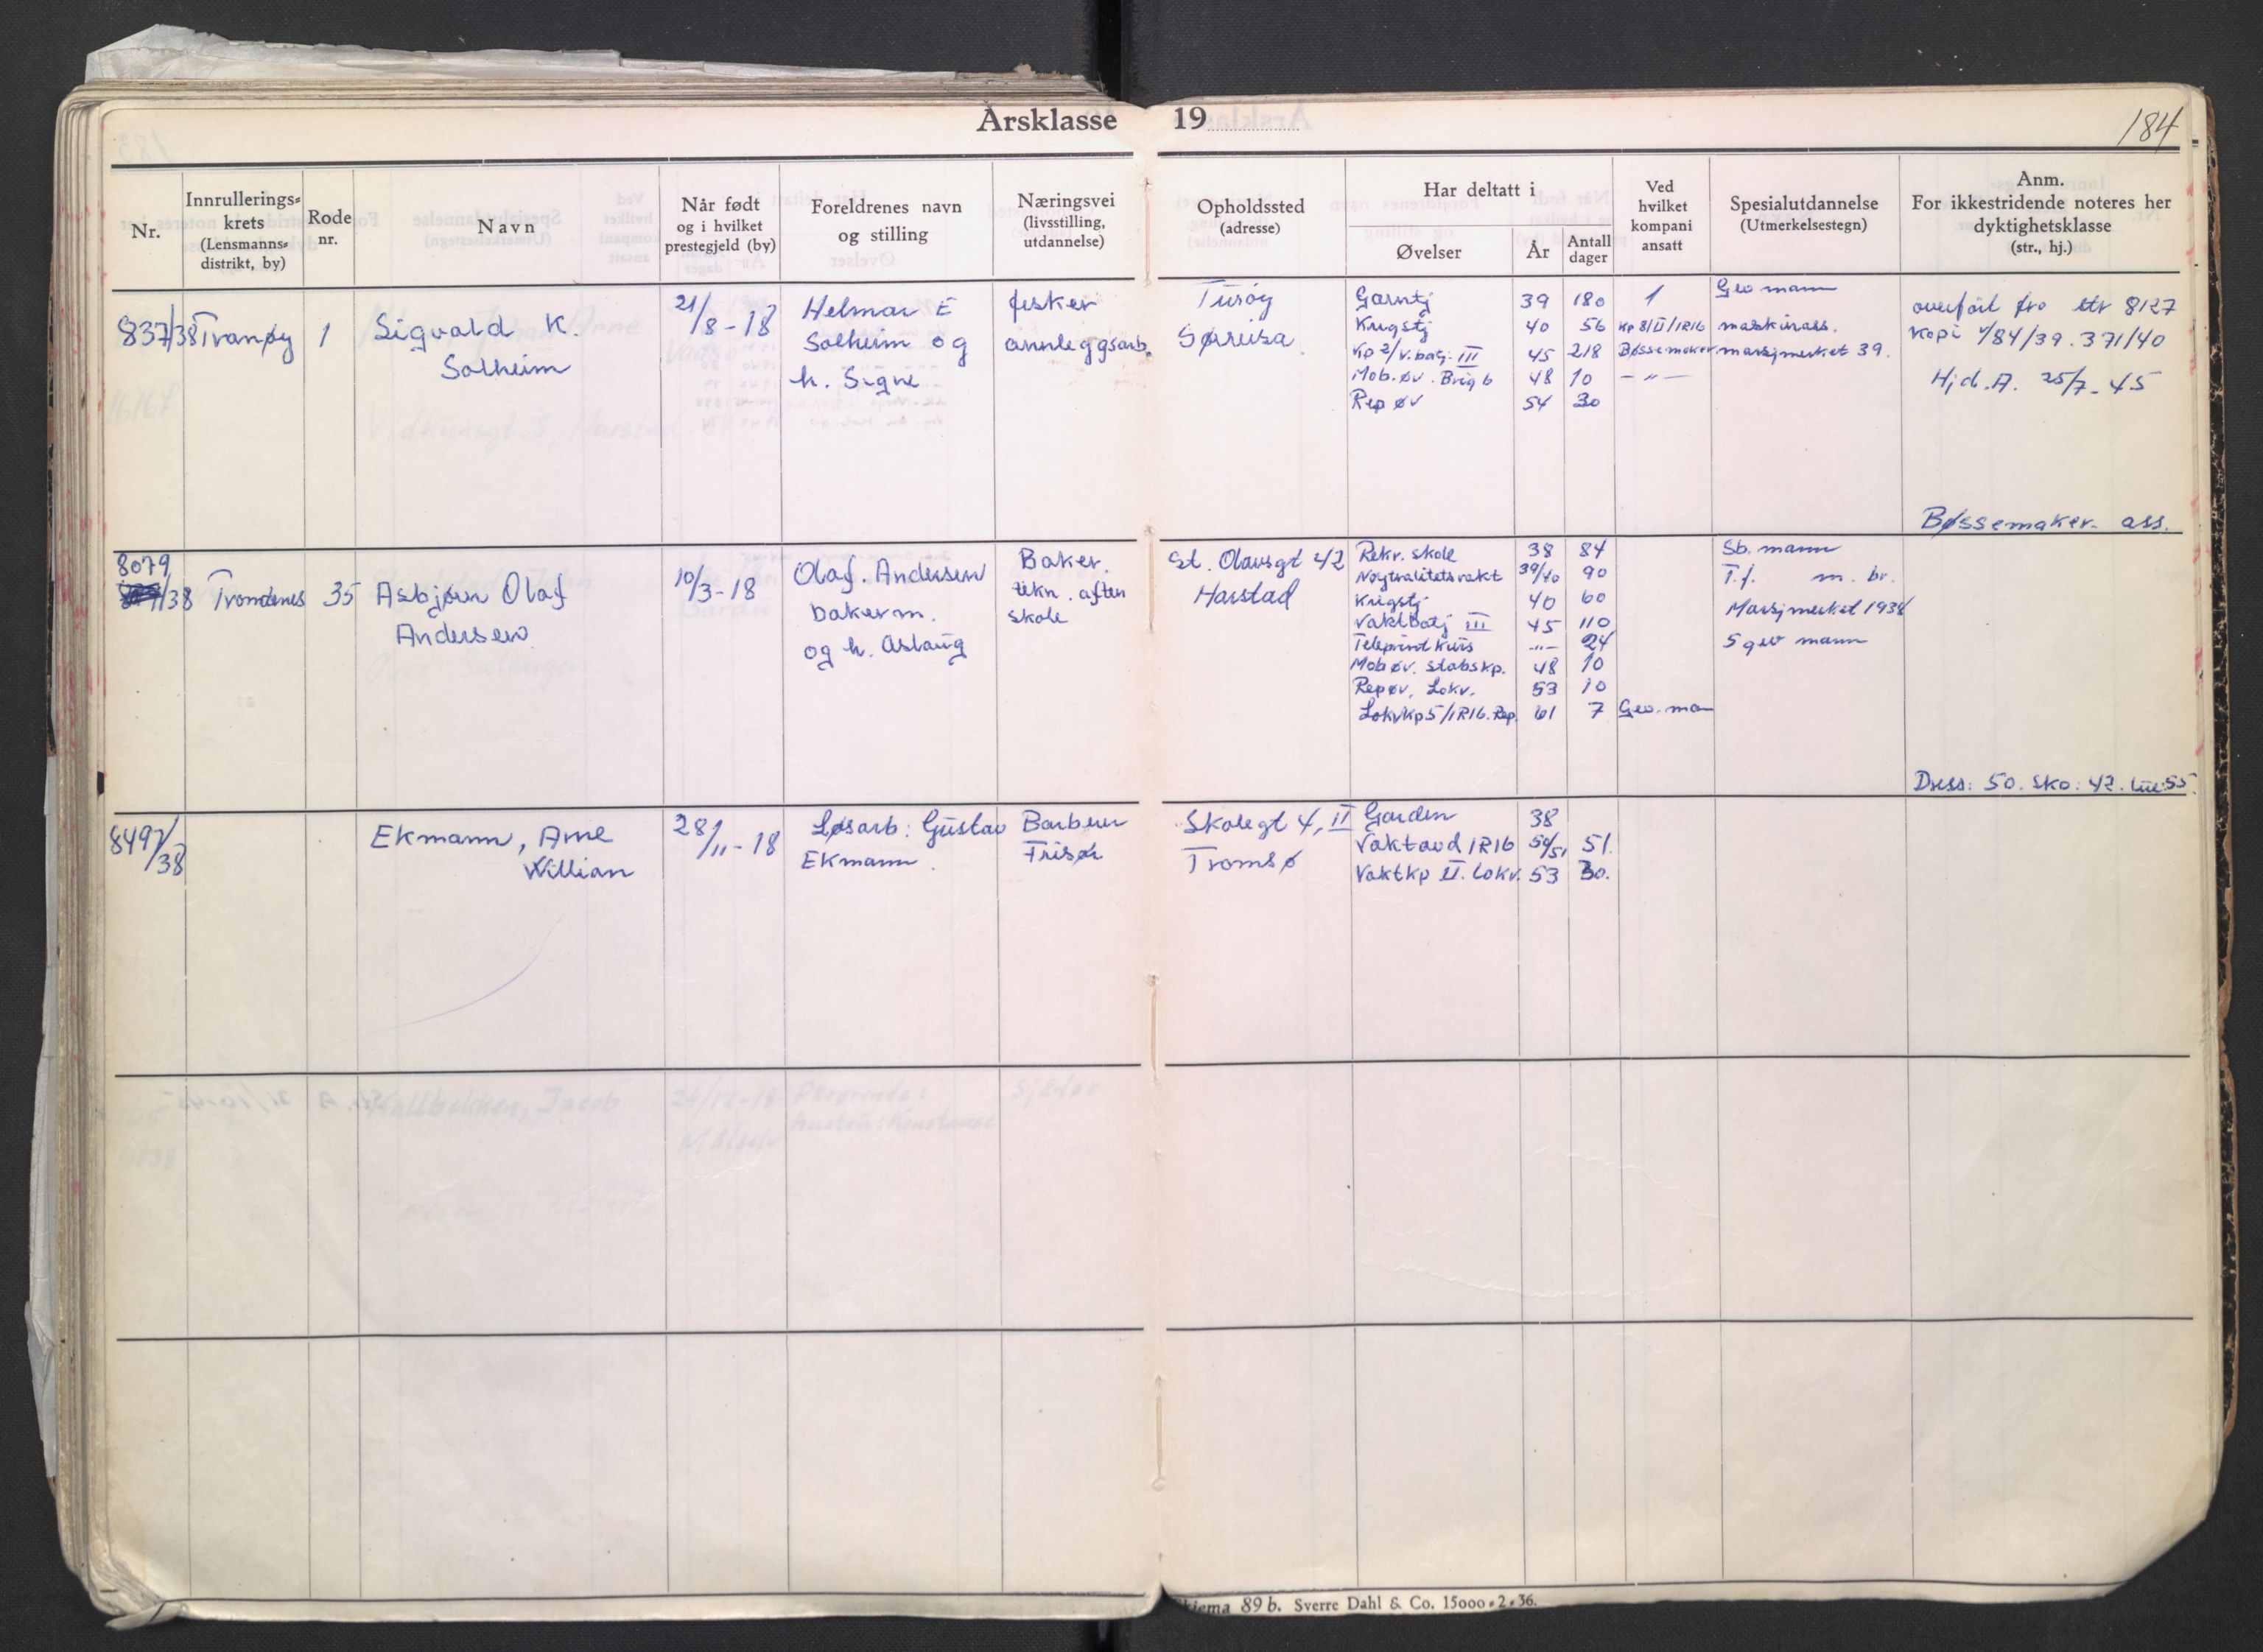 Årsklasse 19
184
Nr.
Innrullerings-
krets
(Lensmanns-
distrikt, by)
Rode
nr.
Navn
Når født
og i hvilket
prestegjeld (by)
Foreldrenes navn
og stilling
Næringsvei
(livsstilling,
utdannelse)
Opholdssted
(adresse)
Har deltatt i
Øvelser
År
Antall
dager
Ved
hvilket
kompani
ansatt
Spesialutdannelse
(Utmerkelsestegn)
Anm.
For ikkestridende noteres her
dyktighetsklasse
(str., hj.)
837/38
Tranøy
1
Sigvald K.
Solheim
21/8-18
Helmar E
Solheim og
h. Signe
fisker
annleggsarb.
Sørreisa
Garntj 39 180 1
Krigstj 40 56 Kp 8/II/IR16
Kp 2/V.batj. III 45 218 Bøssemaker
Mob. øv. Brig 6 48 10 -"-
Rep øv 54 30
Gev mann
maskinass.
marsjmerket 39.
overført fra ltr 8127
Kopi 4/84/39. 371/40
Hj.d.A. 25/7-45
Bøssemaker. ass.
8079
/38
Trondenes
35
Asbjørn Olaf
Andersen
10/3-18
Olaf. Andersen
bakerm.
og h. Aslaug
Baker.
tekn. aften
skole
St. Olavsgt 42
Harstad
Rekr. skole 38 84
Nøytralitetsvakt 39/40 90
Krigstj 40 60
Vaktbatj III 45 110
Teleprint kurs -"- 24
Mob øv. stabskp. 48 10
Rep øv. Lokv. 53 10
Lokvkp 5/IR16. Rep. 61 7 Gev. man
Sb. mann
T.f. m. br.
Marsjmerket 1938
5 gev mann
Dress: 50. Sko: 42. Lue: 55.
8497/38
Ekmann, Arne
Willian
28/11-18
Løsarb: Gustav
Ekmann.
Barberer
Frisør
Skolegt 4, II
Tromsø
Garden 38
Vaktavd IR16 50/51 51.
Vaktkp II. Lokv. 53 30.
89 b. Sverre Dahl & Co. 15000-2-36.